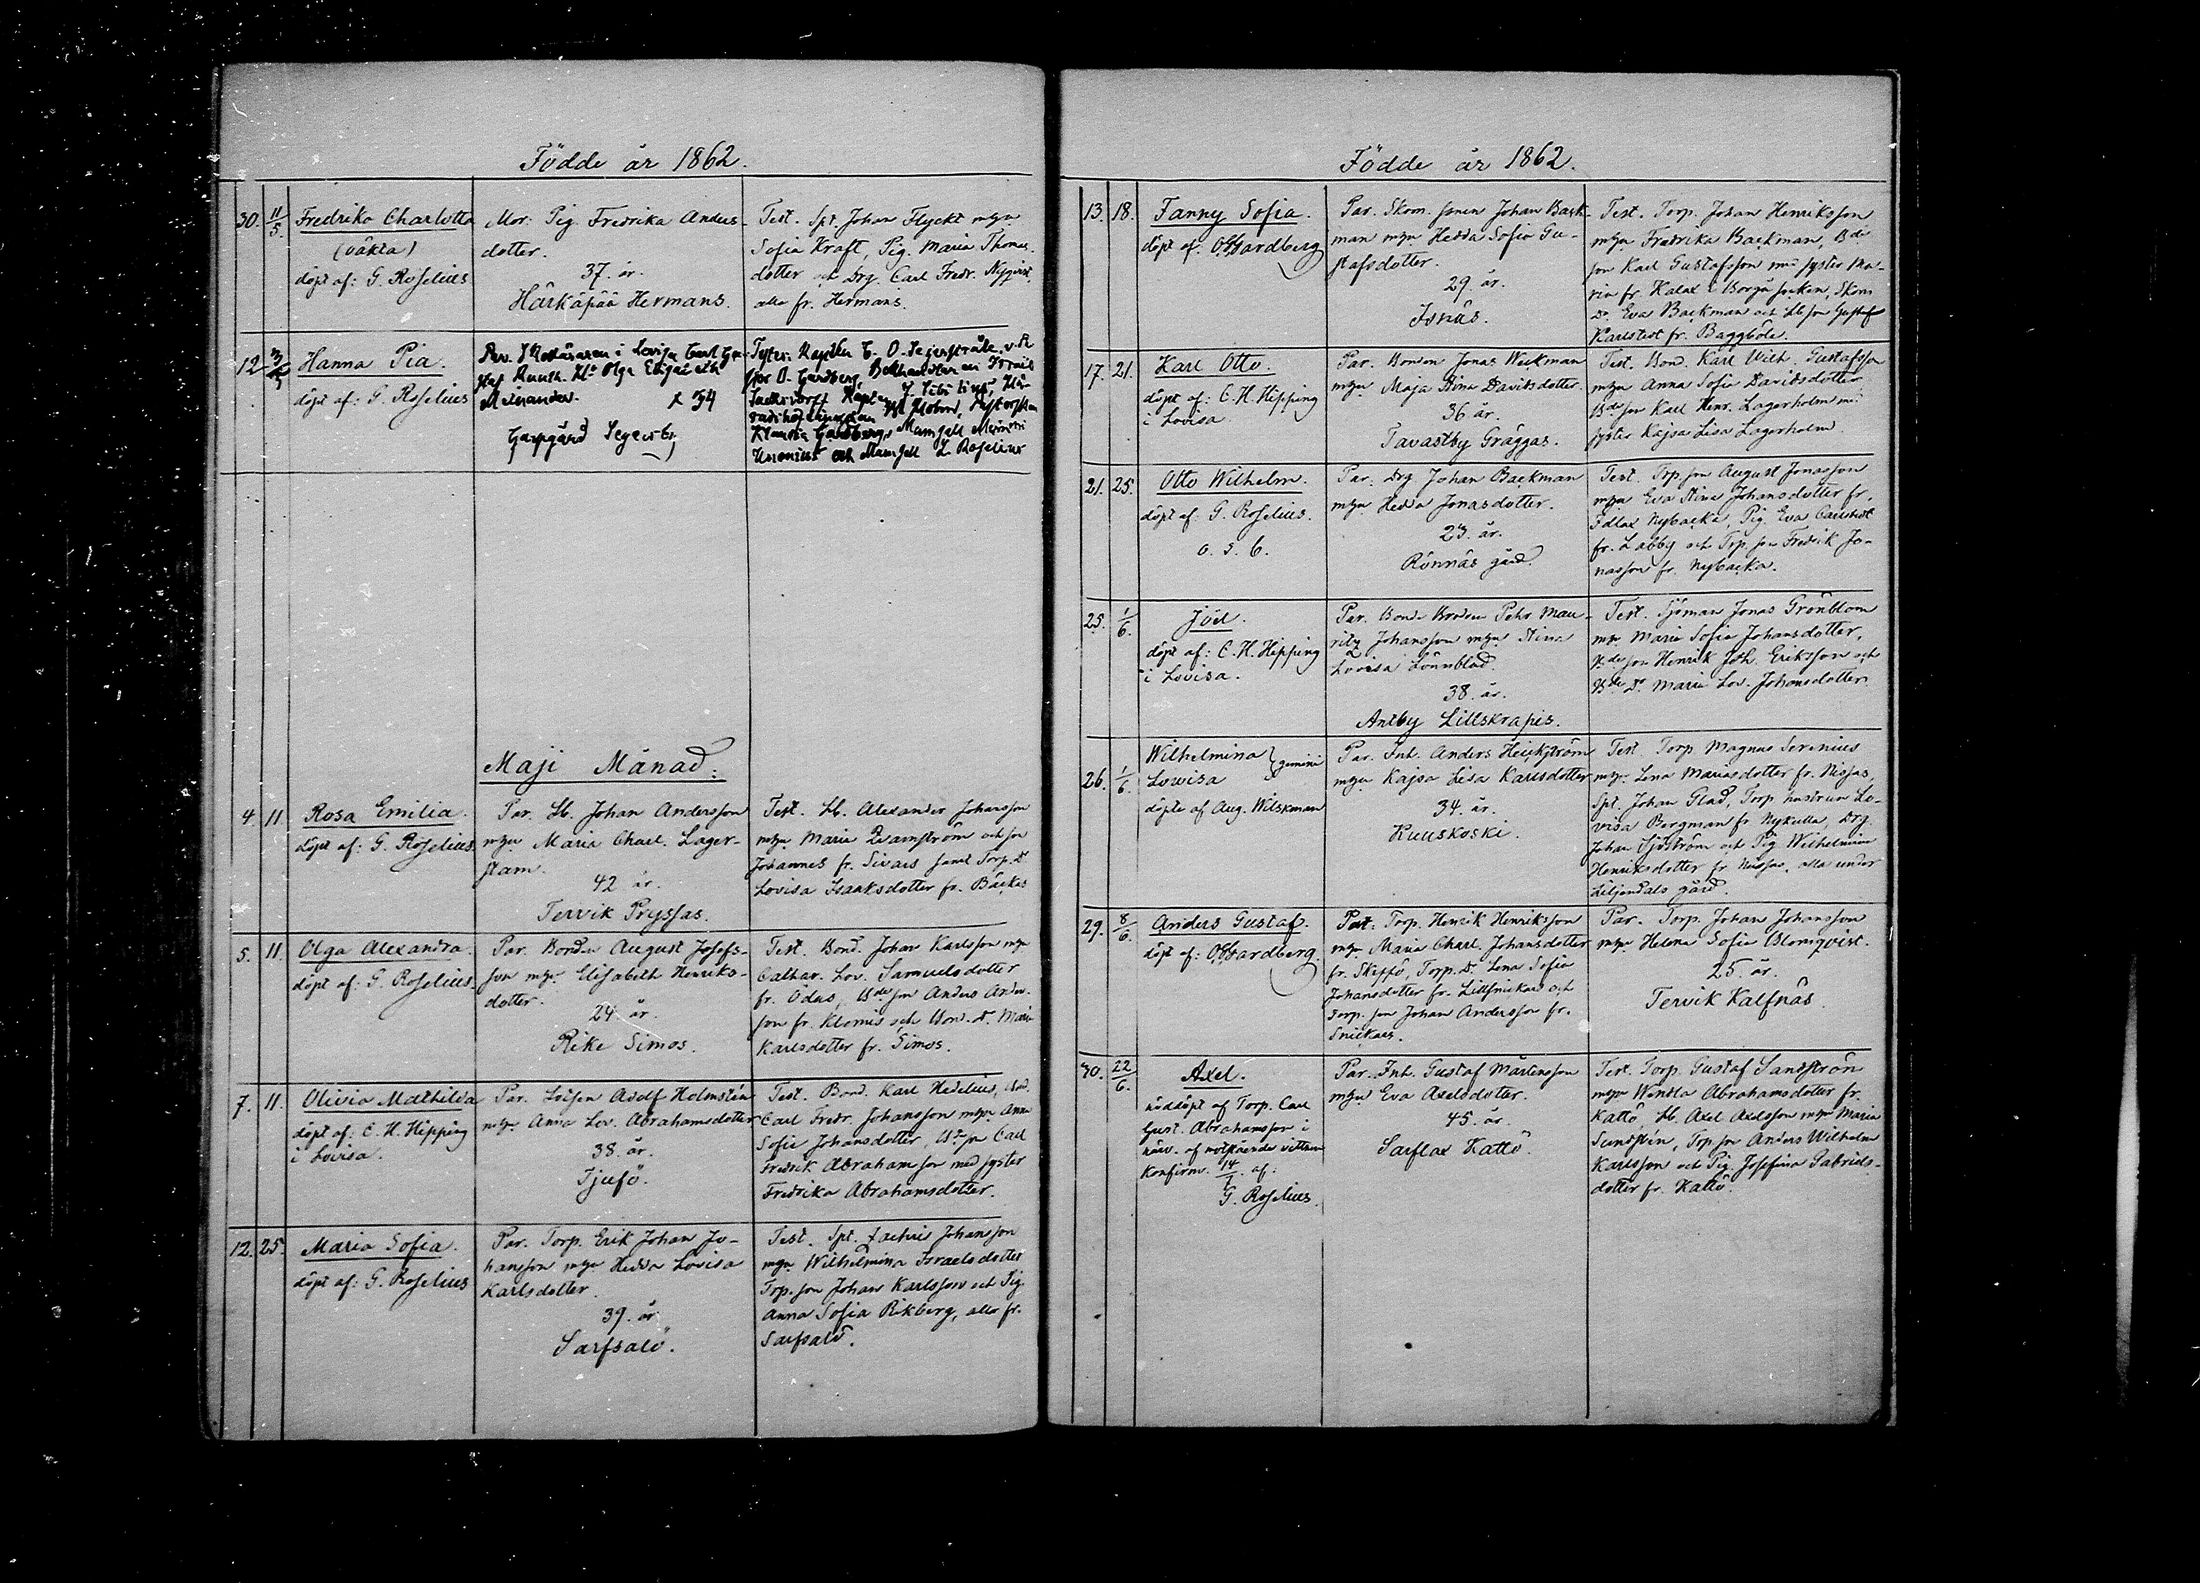 Födde år 1862.
30. 11/5 Fredrika Charlotta
(oäkta)
döpt af: G. Roselius
Mor. Pig. Fredrika Anders-
dotter.
37. år.
Härkäpää Hermans.
Test. Spt. Johan Flyckt m hu
Sofia Kraft, Pig. Maria Thomas-
dotter och Drg. Carl Fredr. Nyqvist,
alla fr. Hermans.
12 Hanna Pia.
döpt af: G. Roselius
i Lovisa Carl Gu-
staf Olga Elisabeth
34
Segersby
Kapten C. O. Segerstråle
O. Gardberg, Bokhandlaren
Kapten
Klaudia Gardberg, Mamsell
och Mamsell L. Roselius
Maji Månad.
4 11. Rosa Emilia.
döpt af: G. Roselius
Par. Lb. Johan Andersson
m hu Maria Charl. Lager-
stam.
42 år.
Tervik Pryssas.
Test. Lb. Alexander Johansson
m hu Maria Qvarnström och son
Johannes fr. Sivars samt Torp. Dr
Lovisa Isaaksdotter fr. Backas
5. 11. Olga Alexandra.
döpt af: G. Roselius.
Par. Bonden August Josefs-
son m hu Elisabeth Henriks-
dotter.
24. år.
Rike Simos.
Test. Bond. Johan Karlsson m hu
Cathar. Lov. Samuelsdotter
fr. Ödas, Bde son Anders Anders-
son fr. Klomis och Bond. Dr. Maria
Karlsdotter fr. Simos.
7. 11. Olivia Mathilda
döpt af: C. H. Hipping
i Lovisa.
Par. Lotsen Adolf Holmstén
m hu Anna Lov. Abrahamsdotter
38. år.
Tjufö.
Test. Bond. Karl Hedelius, Bond.
Carl Fredr. Johansson m hu Anna
Sofia Johansdotter, Bde son Carl
Fredrik Abrahamsson med syster
Fredrika Abrahamsdotter.
12. 25. Maria Sofia.
döpt af: G. Roselius
Par. Torp. Erik Johan Jo-
hansson m hu Hedda Lovisa
Karlsdotter.
39. år
Sarfsalö.
Test. Spt. Zachris Johansson
m hu Wilhelmina Israelsdotter
Torp. son Johan Karlsson och Pig.
Anna Sofia Rikberg, alla fr.
Sarfsalö.
Födde år 1862.
13. 18. Fanny Sofia.
döpt af: O. Gardberg
Par. Skom. sonen Johan Back-
man m hu Hedda Sofia Gu-
stafsdotter.
29. år.
Isnäs.
Test. Torp. Johan Henriksson
m hu Fredrika Backman, Bde
son Karl Gustafsson med syster Ma-
ria fr. Kalax i Borgå socken, Skom.
Dr. Eva Backman och Lb son Gustaf
Karlstedt fr. Baggböle.
17. 21. Karl Otto.
döpt af: C. H. Hipping
i Lovisa.
Par. Bonden Jonas Weckman
m hu Maja Stina Davidsdotter.
36 år.
Tavastby Gräggas.
Test. Bond. Karl Wilh. Gustafsson
m hu Anna Sofia Davidsdotter
Bde son Karl Henr. Lagerholm med
syster Kajsa Lisa Lagerholm
21. 25. Otto Wilhelm.
döpt af: G. Roselius.
o. s. b.
Par. Drg Johan Backman
m hu Hedda Jonasdotter.
23. år.
Rönnäs gård.
Test. Torp. son August Jonasson
m hu Eva Stina Johansdotter fr.
Edlax Nybacka, Pig. Eva Carlstedt
fr. Labby och Trp. son Fredrik Jo-
nasson fr. Nybacka.
25. 1/6. Joël.
döpt af: C. H. Hipping
i Lovisa.
Par. Bonden Pehr Mau-
ritz Johansson m hu Stina
Lovisa Lönnblad.
38. år.
Antby Lillskrapis.
Test. Sjöman Jonas Grönblom
m hu Maria Sofia Johansdotter,
Bde son Henrik Joh. Eriksson och
Bde Dr. Maria Lov. Johansdotter.
26. 1/6. Wilhelmina } gemini
Lowisa
döpte af Aug. Wilskman
Par. Inh. Anders Heickström
m hu Kajsa Lisa Karlsdotter
34. år.
Kuuskoski.
Test Torp Magnus Serenius
m hu Lena Mariasdotter fr. Nissas,
Spt. Johan Glad, Torp. hustrun Lo-
visa Bergman fr Nykulla, Drg.
Johan Sjöström och Pig Wilhelmina
Henriksdotter fr Nissas, alla under
Liljendals gård.
29. 8/6. Anders Gustaf.
döpt af: O. Gardberg.
Test. Torp. Henrik Henriksson
m hu Maria Charl. Johansdotter
fr. Skeppö, Torp. Dr. Lena Sofia
Johansdotter fr. Lillsnickars och
Torp. son Johan Andersson fr.
Snickars.
Par. Torp. Johan Johansson
m hu Helena Sofia Blomqvist.
25. år.
Tervik Kalfnäs.
30. 22/6. Axel.
nöddöpt af Torp. Carl
Gust. Abrahamsson i
närv. af motstående vittnen
Konfirm. 14/7. af:
G. Roselius.
Par. Inh. Gustaf Mårtensson
m hu Eva Axelsdotter.
45. år.
Sarflax Kattö.
Test. Torp. Gustaf Sandström
m hu Wendla Abrahamsdotter fr.
Kattö, Lb. Axel Axelsson m hu Maria
Sundstén, Trp. son Anders Wilhelm
Karlsson och Pig. Josefina Gabriels-
dotter fr. Kattö.